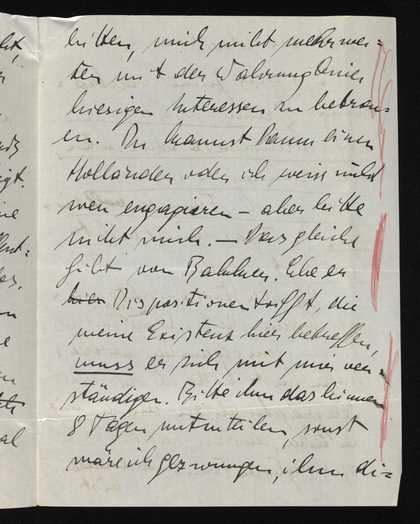 bitten, mich nicht mehr wei=
ter mit der Wahrung Deiner
hiesigen Interessen zu betrau=
en. Du kannst dann einen
Holländer oder ich weiss nicht
wen engagieren – aber bitte
nicht mich. – Das gleiche
gilt von Ehe er
hier Dispositionen trifft, die
meine Existenz hier betreffen,
muss er sich mit mir ver=
ständigen. Bitte ihm das binnen
8 Tagen mitzuteilen, sonst
wäre ich gezwungen, ihm di=
al